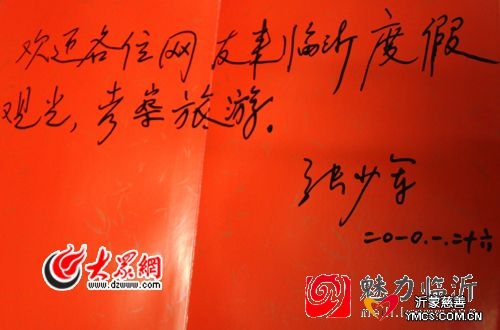 欢迎各位网友来临沂度假
观光，考察旅游。
张少军
二〇一〇.一.二十六
大眾網
www.dzwww.com
魅力临沂
沂蒙慈善
YMCS.COM.CN